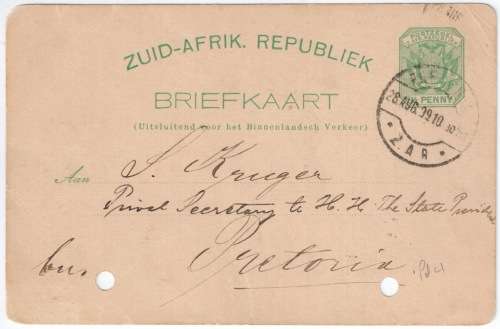 ZUID-AFRIK. REPUBLIEK
BRIEFKAART
(Uitsluitend voor het Binnenlandsch Verkeer)
PENNY
28 AUG. 99 10
Z.A.R.
Aan S. Kruger
Prival Secretary to H. H. The State President
Pretoria